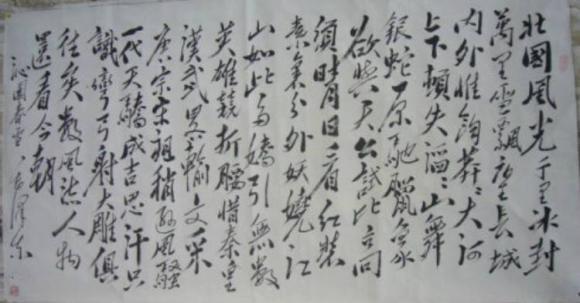 北國風光千里冰封
萬里雪飄望長城
内外惟餘莽〻大河
上下頓失滔〻山舞
銀蛇原馳臘象
欲與天公試比高
須晴日看紅裝
素裹分外妖嬈江
山如此多嬌引無數
英雄競折腰惜秦皇
漢武略輸文采
唐宗宋祖稍遜風騷
一代天驕成吉思汗只
識彎弓射大雕俱
往矣數風流人物
還看今朝
沁園春雪 毛澤東